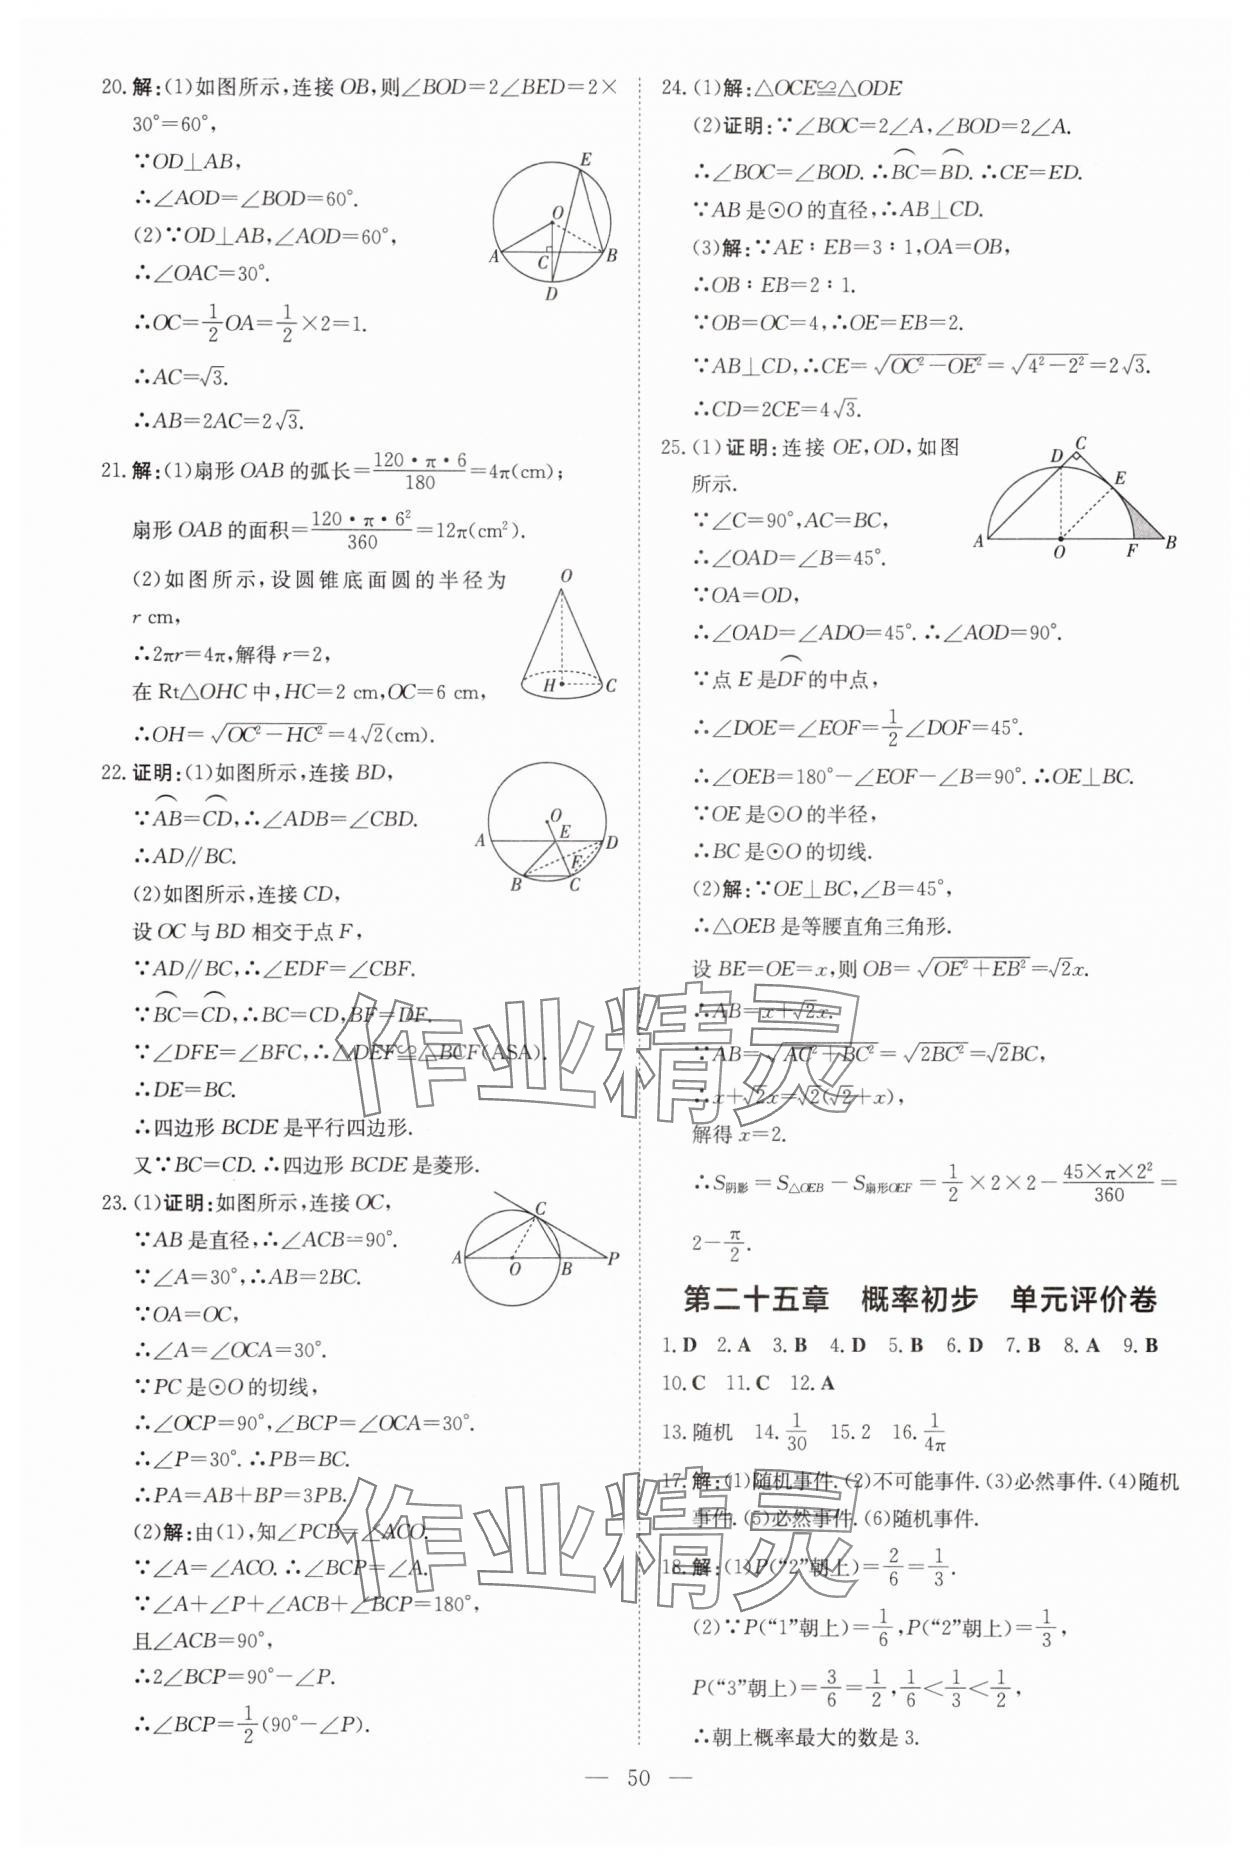 20. 解:(1)如图所示,连接 OB,则∠BOD=2∠BED=2×
30°=60°,
∵OD⊥AB,
∴∠AOD=∠BOD=60°.
(2)∵OD⊥AB,∠AOD=60°,
∴∠OAC=30°.
∴OC=1/2 OA=1/2×2=1.
∴AC=√3.
∴AB=2AC=2√3.
E
O
A
C
B
D
21. 解:(1)扇形 OAB 的弧长=(120·π·6)/180=4π(cm);
扇形 OAB 的面积=(120·π·6²)/360=12π(cm²).
(2)如图所示,设圆锥底面圆的半径为
r cm,
∴2πr=4π,解得 r=2,
在 Rt△OHC 中,HC=2 cm,OC=6 cm,
∴OH=√(OC²-HC²)=4√2(cm).
O
H
C
22. 证明:(1)如图所示,连接 BD,
∵⌒AB=⌒CD,∴∠ADB=∠CBD.
∴AD∥BC.
(2)如图所示,连接 CD,
设 OC 与 BD 相交于点 F,
∵AD∥BC,∴∠EDF=∠CBF.
∵⌒BC=⌒CD,∴BC=CD,BF=DF.
∵∠DFE=∠BFC,∴△DEF≌△BCF(ASA).
∴DE=BC.
∴四边形 BCDE 是平行四边形.
又∵BC=CD.∴四边形 BCDE 是菱形.
O
A
E
D
F
B
C
23. (1)证明:如图所示,连接 OC,
∵AB 是直径,∴∠ACB=90°.
∵∠A=30°,∴AB=2BC.
∵OA=OC,
∴∠A=∠OCA=30°.
∵PC 是⊙O 的切线,
∴∠OCP=90°,∠BCP=∠OCA=30°.
∴∠P=30°.∴PB=BC.
∴PA=AB+BP=3PB.
(2)解:由(1),知∠PCB=∠ACO.
∵∠A=∠ACO.∴∠BCP=∠A.
∵∠A+∠P+∠ACB+∠BCP=180°,
且∠ACB=90°,
∴2∠BCP=90°-∠P.
∴∠BCP=1/2(90°-∠P).
C
A
O
B
P
24. (1)解:△OCE≌△ODE
(2)证明:∵∠BOC=2∠A,∠BOD=2∠A.
∴∠BOC=∠BOD.∴⌒BC=⌒BD.∴CE=ED.
∵AB 是⊙O 的直径,∴AB⊥CD.
(3)解:∵AE∶EB=3∶1,OA=OB,
∴OB∶EB=2∶1.
∵OB=OC=4,∴OE=EB=2.
∵AB⊥CD,∴CE=√(OC²-OE²)=√(4²-2²)=2√3.
∴CD=2CE=4√3.
25. (1)证明:连接 OE,OD,如图
所示.
∵∠C=90°,AC=BC,
∴∠OAD=∠B=45°.
∵OA=OD,
∴∠OAD=∠ADO=45°.∴∠AOD=90°.
∵点 E 是⌒DF的中点,
∴∠DOE=∠EOF=1/2∠DOF=45°.
∴∠OEB=180°-∠EOF-∠B=90°.∴OE⊥BC.
∵OE 是⊙O 的半径,
∴BC 是⊙O 的切线.
(2)解:∵OE⊥BC,∠B=45°,
∴△OEB 是等腰直角三角形.
设 BE=OE=x,则 OB=√(OE²+EB²)=√2x.
∴AB=x+√2x.
∵AB=√(AC²+BC²)=√(2BC²)=√2BC,
∴x+√2x=√2(√2+x),
解得 x=2.
∴S阴影=S△OEB-S扇形OEF=1/2×2×2-(45×π×2²)/360=
2-π/2.
C
D
E
A
O
F
B
第二十五章 概率初步 单元评价卷
1. D 2. A 3. B 4. D 5. B 6. D 7. B 8. A 9. B
10. C 11. C 12. A
13. 随机 14. 1/30 15. 2 16. 1/4π
17. 解:(1)随机事件.(2)不可能事件.(3)必然事件.(4)随机
事件.(5)必然事件.(6)随机事件.
18. 解:(1)P(“2”朝上)=2/6=1/3.
(2)∵P(“1”朝上)=1/6,P(“2”朝上)=1/3,
P(“3”朝上)=3/6=1/2,1/6<1/3<1/2,
∴朝上概率最大的数是 3.
— 50 —
作业精灵
作业精灵